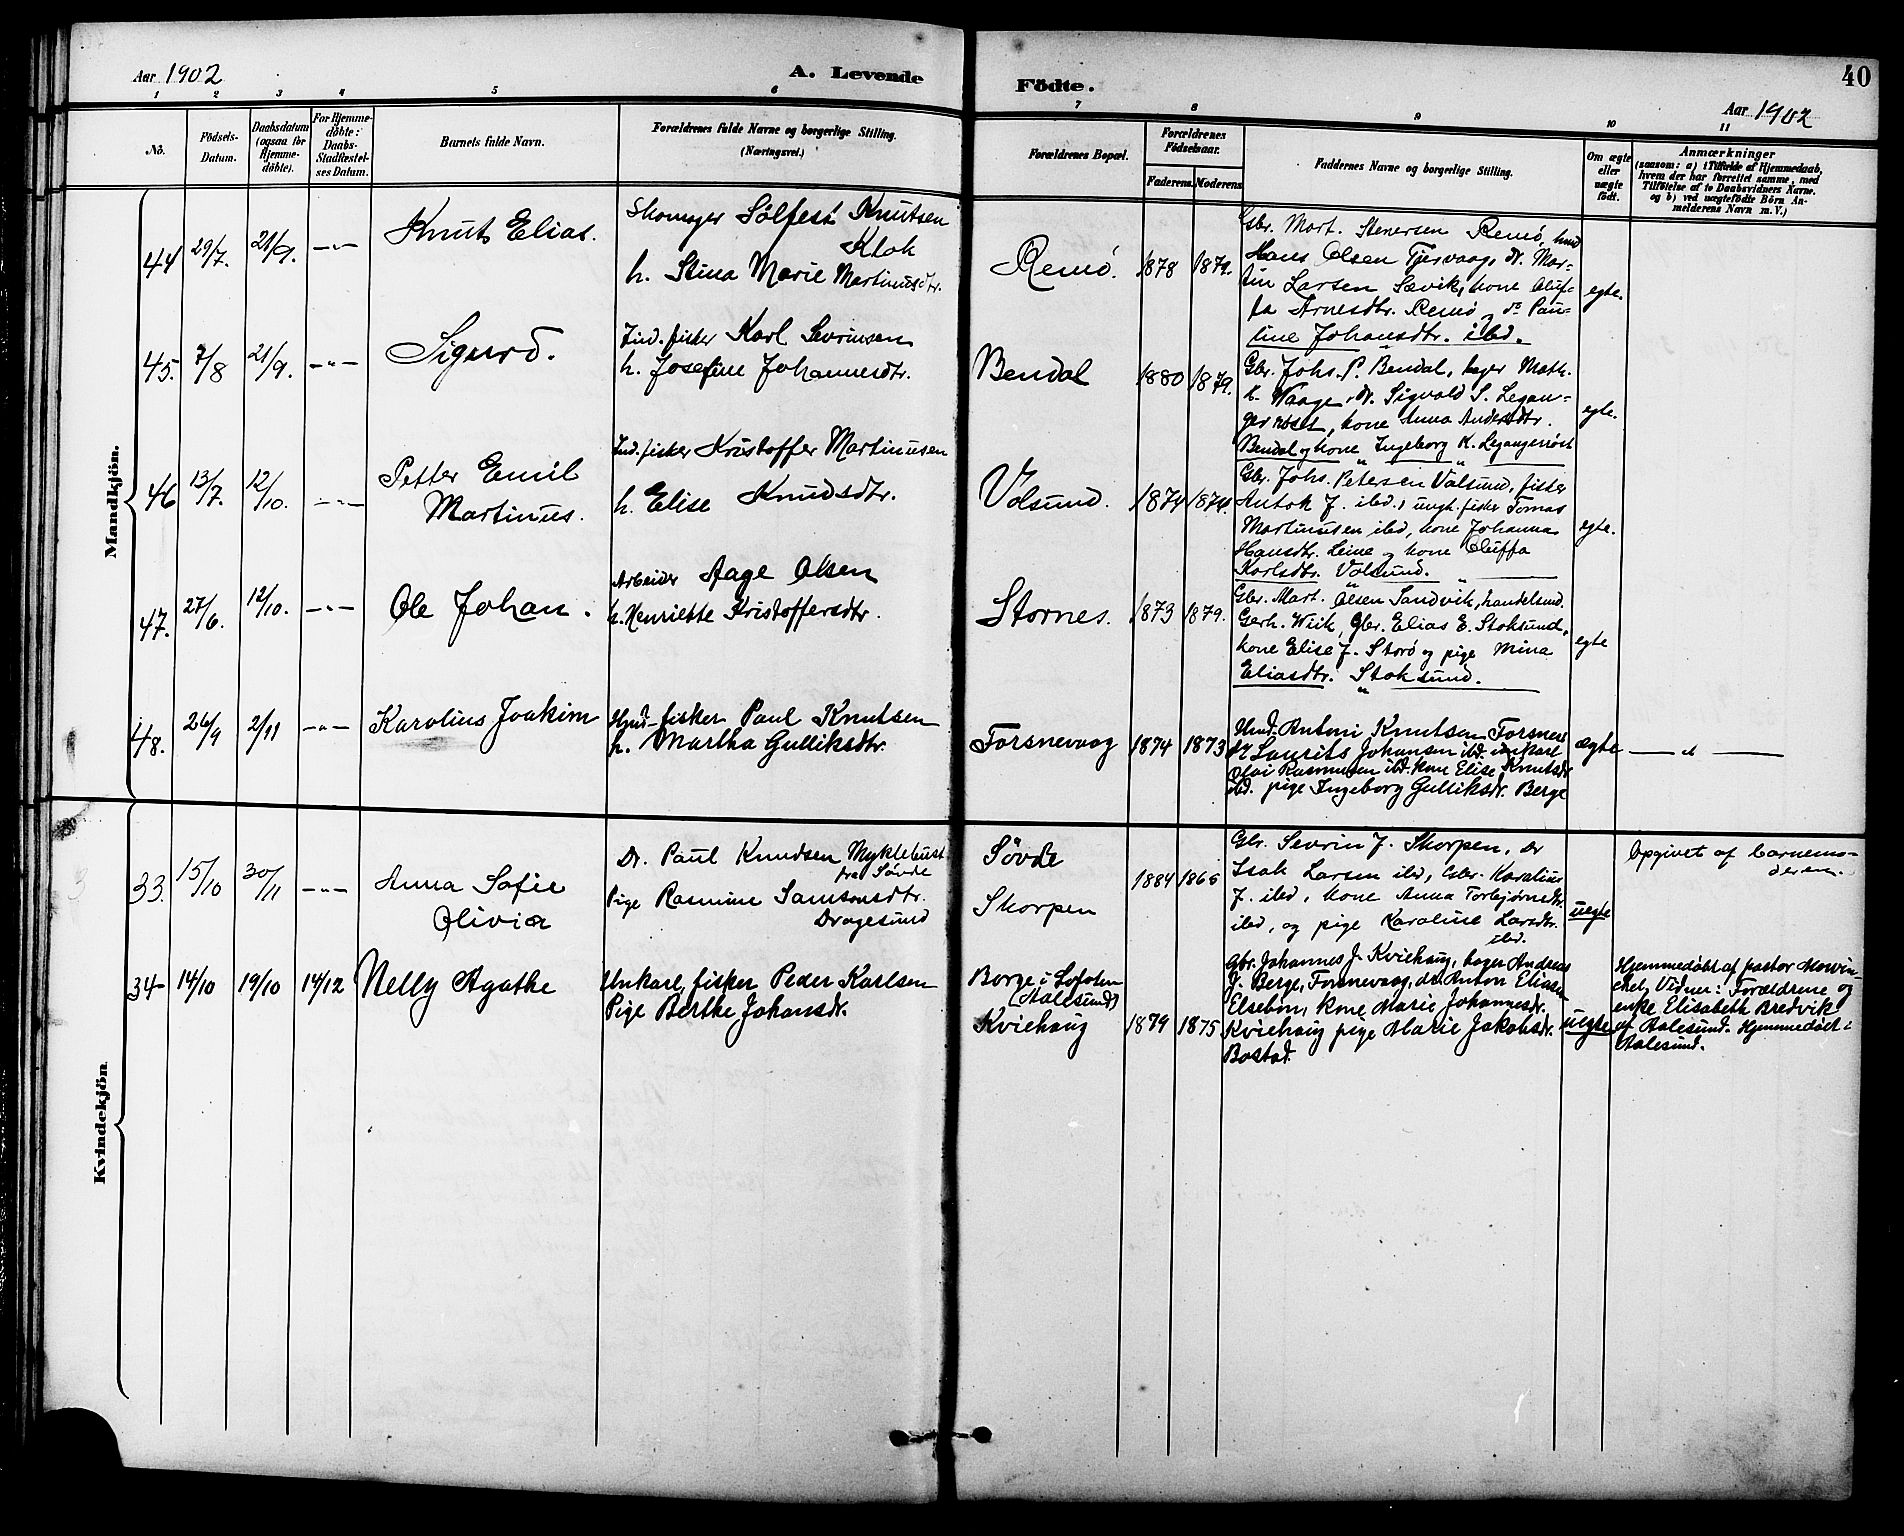 Aar 1902
A. Levende
Födte.
40
Aar 1902
1 2 3 4 5 6
7 8 9 10 11
No.
Födsels-
Datum.
Daabsdatum
(ogsaa for
Hjemme-
døbte).
For Hjemme-
døbte:
Daabs-
Stadfæstel-
ses Datum.
Barnets fulde Navn.
Forældrenes fulde Navne og borgerlige Stilling.
(Næringsvei.)
Forældrenes Bopæl.
Forældrenes
Födselsaar.
Faderens. Moderens.
Faddernes Navne og borgerlige Stilling.
Om ægte
eller
uægte
født.
Anmærkninger
(saasom: a) i Tilfælde af Hjemmedaab,
hvem der har forrettet samme, med
Tilföielse af to Daabsvidners Navne.
og b) ved uægtefødte Börn An-
melderens Navn m. V.)
Mandkjön.
44 29/7. 21/9. —"—
Knut Elias.
Skomager Sölfest Knutsen
Klok
h. Stina Marie Martinusdtr.
Remö. 1878 1879.
Gbr. Mart. Stenersen Remö, hmd
Hans Olsen Tjervaag, do. Mar-
tin Larsen Sævik, kone Oluf-
fa Arnesdtr. Remö og do Pau-
line Johansdtr. ibd.
egte.
45. 7/8 21/9. —"—
Sigurd.
Ind. fisker Karl Sevrinsen
h. Josefine Johannesdtr.
Bendal 1880 1879.
Gbr. Johs. P. Bendal, bager Math.
K. Waage, do. Sigvald S. Legan-
gernöst, kone Anna Andersdtr.
Bendal og kone Ingeborg K. Legangernöst
egte.
46 13/7. 12/10. —"—
Petter Emil
Martinus.
Ind. fisker Kristoffer Martinusen
h. Elise Knudsdtr.
Volsund. 1874 1874.
Gbr. Johs. Petersen Volsund, fisker
Antok J. ibd., ungk. fisker Tomas
Martinusen ibd, kone Johanna
Hansdtr. Leine og kone Oluffa
Karlsdtr. Volsund.
egte.
47. 27/6. 12/10. —"—
Ole Johan.
Arbeider Aage Olsen
h. Henriette Kristoffersdtr.
Stornes. 1873 1879.
Gbr. Mart. Olsen Sandvik, handelsmd.
Gerh. Wiik, Gbr. Elias E. Stoksund,
kone Elise J. Storö og pige Mina
Eliasdtr. Stoksund.
egte
48. 26/9 2/11 —"—
Karolius Joakim
Hmd. fisker Paul Knutsen
h. Martha Gulliksdtr.
Forsnevaag 1874 1873
Hmd. Antoni Knutsen Forsnev
do Laurits Johansen ibd. unkarl
Olai Rasmusen ibd. kone Elise Knutsdr
ibd. pige Ingeborg Gulliksdr. Berge
ægte —"—
Kvindekjön
33. 15/10 30/11 —"—
Anna Sofie
Olivia
Dr. Paul Knudsen Myklebust
fra Søvde
Pige Rasmine Samsonsdtr.
Dragesund
Søvde
Skorpen
1884 1865
Gbr. Severin J. Skorpen, do
Isak Larsen ibd, Gbr. Karolius
J. ibd, kone Anna Torbjørnsdtr.
ibd, og pige Karoline Larsdtr.
ibd.
uegte
Opgivet af barnemo-
deren.
34- 14/10 19/10 14/12
Nelly Agathe
Unkarl, fisker Peder Karlsen
Pige Berthe Johansdr.
Borge i Lofoten
(Aalesund)
Kviehaug 1879 1875
Gbr. Johannes J. Kviehaug, bager Andreas
J. Berge, Forsnevaag, do. Anton Eliasen
Elsebøn, kone Marie Johannesdr.
Kviehaug pige Marie Jakobsdr.
Bostad.
uegte
Hjemmedøbt af pastor Morwin-
chel, Vidner: Forældrene og
enke Elisabeth Bredvik
af Aalesund. Hjemmedøbt i
Aalesund.